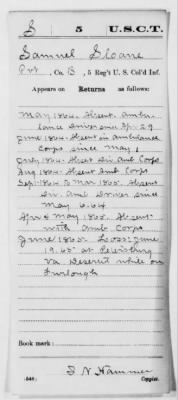 S 5 U.S.C.T.
Samuel Sloane
Pvt, Co. B, 5 Reg't U. S. Col'd Inf.
Appears on Returns as follows:
May 1864. Absent Ambu-
lance Driver since
June 1864. Absent in ambulance
Corps since May
July 1864. Absent in Amb. Corps
Aug 1864. Absent Amb. Corps
Sept 1864 to Mar 1865. Absent
Amb Driver since
May 6.64
Apr & May 1865. Absent
with Amb Corps
June 1865. Loss: June
19.65 at Petersburg
Va Desert while on
Furlough
Book mark:
Hammer
(546) Copyist.